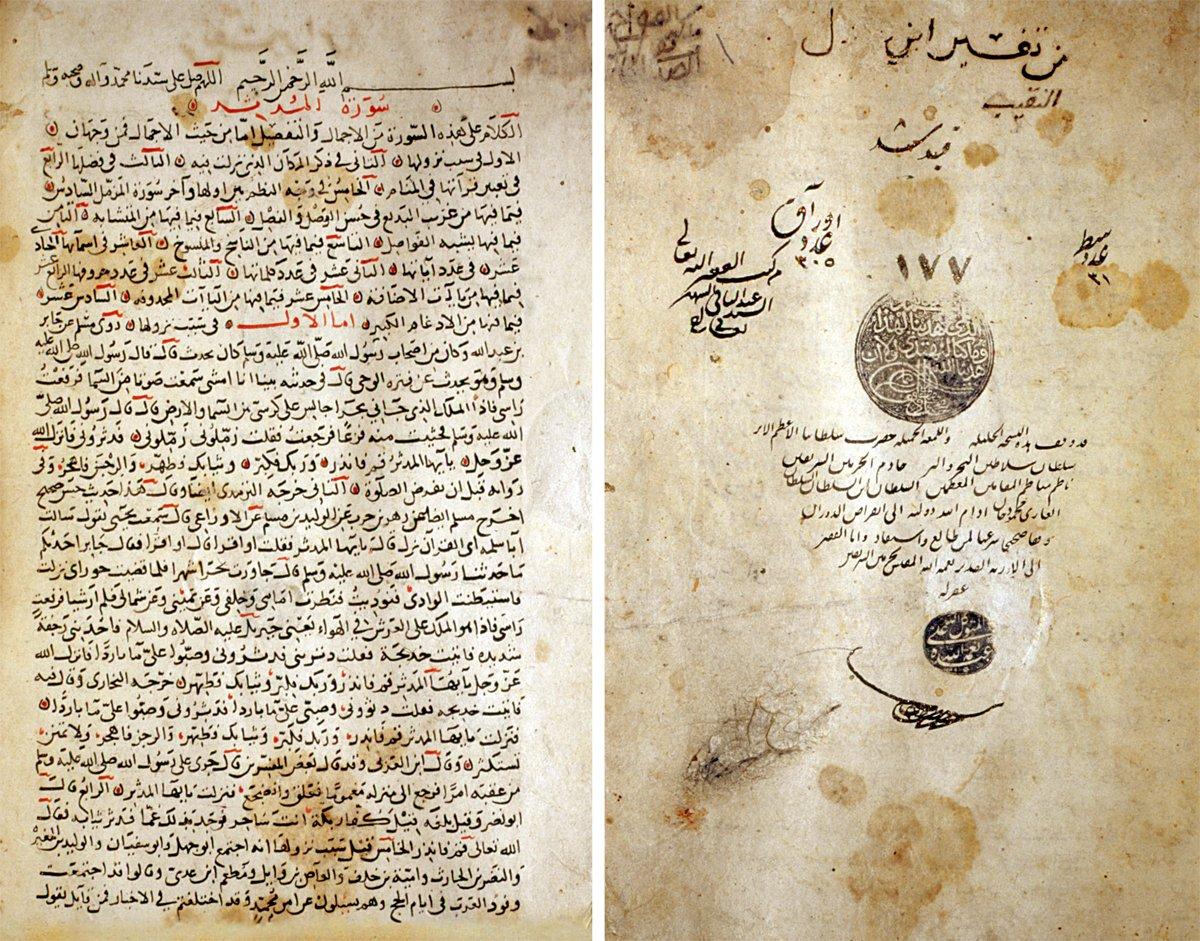 من تفسير ابن
النقيب
قيد شد
اوراق
عدد
٣٠٥
سطر
عدد
٣١
١٧٧
الحمد لله الذي هدانا لهذا
وما كنا لنهتدي لولا ان
هدانا الله
قد وقف هذه النسخة الجليلة حضرت سلطاننا الأعظم
سلطان سلاطين خادم الحرمين الشريفين
السلطان ابن السلطان السلطان
الغازي محمود خان ادام الله دولته الى انقراض الدوران
وقفا صحيحا شرعيا لمن طالع واستفاد وانا الفقير
غفر له
بسم الله الرحمن الرحيم اللهم صل على سيدنا محمد واله وصحبه وسلم
سورة المدثر
الكلام على هذه السورة من الاجمال والتفصيل اما من حيث الاجمال فمن وجهات
الاول في سبب نزولها الثاني في ذكر المكان الذي نزلت فيه الثالث في فضلها الرابع
في تعبير قرآتها في المنام الخامس في وجه النظم بين اولها وآخر سورة المزمل السادس
فيما فيها من غريب البديع في حسن الوصل والفصل السابع فيما فيها من المتشابه الثامن
فيما فيها يشبه الفواصل التاسع فيما فيها من الناسخ والمنسوخ العاشر في اسمائها الحادي
عشر في عدد آياتها الثاني عشر في عدد كلماتها الثالث عشر في عدد حروفها الرابع عشر
فيما فيها من يآت الاضافه الخامس عشر فيما فيها من اليآات المحدوفه السادس عشر
فيما فيها من الادغام الكبير اما الاول في سبب نزولها روى مسلم عن جابر
بن عبد الله وكان من اصحاب رسول الله صلى الله عليه وسلم كان يحدث قال قال رسول الله صلى الله عليه
وسلم وهو يحدث عن فتره الوحي قال في حديثه بينا انا امشي سمعت صوتا من السما فرفعت
راسي فاذا الملك الذي جاني بحرا جالس على كرسي بين السما والارض قال قال رسول الله صلى
الله عليه وسلم فجيثت منه فرقا فرجعت فقلت زملوني زملوني فدثروني فانزل الله
عز وجل يايها المدثر قم فانذر وربك فكبر وثيابك فطهر والرجز فاهجر وفي
روايه قبل ان تفرض الصلوة الثاني خرجه الترمذي ايضا وقال هذا حديث حسن صحيح
اخرج مسلم ايضا عن زهير بن حرب عن الوليد بن مسلم عن الاوزاعي قال سمعت يحيى يقول سالت
ابا سلمه اي القرآن نزل قال يايها المدثر فقلت او اقرا قال او اقرا فقال جابر احدثكم
ما حدثنا رسول الله صلى الله عليه وسلم قال جاورت بحرا شهرا فلما قضيت جواري نزلت
فاستبطنت الوادي فنوديت فنظرت امامي وخلفي وعن يميني وعن شمالي فلم ار شيا فرفعت
راسي فاذا هو الملك على العرش في الهواء يعني جبريل عليه الصلاه والسلام فاخذتني رجفة
شديده فاتيت خديجة فقلت دثروني فدثروني وصبوا علي ماء باردا فانزل الله
عز وجل يايها المدثر قم فانذر وربك فكبر وثيابك فطهر خرجه البخاري وقال فيه
فاتيت خديجه فقلت دثروني وصبي علي ماء باردا فدثروني وصبوا علي ماء باردا
فنزلت يايها المدثر قم فانذر وربك فكبر وثيابك فطهر والرجز فاهجر ولا تمنن
تستكثر وقال ابن العربي وقد قال بعض المفسرين قال جرى على رسول الله صلى الله عليه وسلم
من عقبه امر فرجع الى منزله مغموما فقلق واضطجع فنزلت يايها المدثر الرابع قال
ابو نصر وقيل بلغه قول كفار مكة انت ساحر فوجد من ذلك غما فدثر ثيابه فقال
الله تعالى قم فانذر الخامس قيل سبب نزولها انه اجتمع ابو جهل وابو سفيان والوليد بن المغيرة
والنضر بن الحارث وامية بن خلف والعاص بن وايل ومطعم ابن عدي وقالوا قد اجتمعت
وفود العرب في ايام الحج وهم يسيلون عن امر محمد وقد اختلفتم في الاخبار فمن قايل يقول